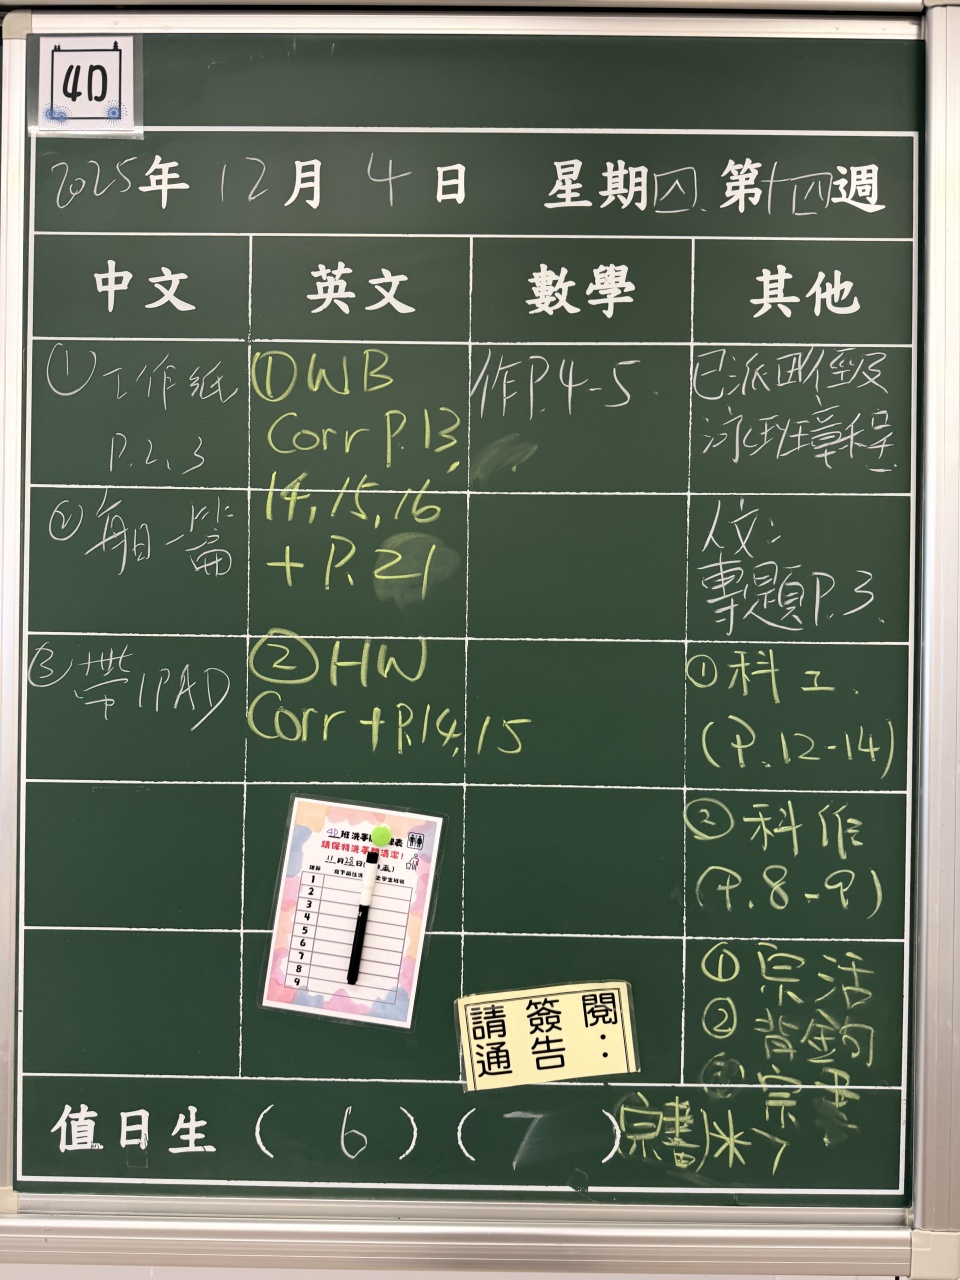 4D
2025年 12月 4日 星期四 第十四週
中文 英文 數學 其他
①工作紙
P.2、3
②每日一篇
③帶IPAD
①WB
Corr P.13,
14,15,16
+P.21
②HW
Corr+P.14,15
作P.4-5
已派田徑及
泳班章程
人文:
專題P.3
①科工
(P.12-14)
②科作
(P.8-9)
①宗活
②背金句
③宗書
宗書
4D班洗手
請保持洗手間清潔!
11月28日
1
2
3
4
5
6
7
8
9
請簽閱
通告:
值日生(6)(7)